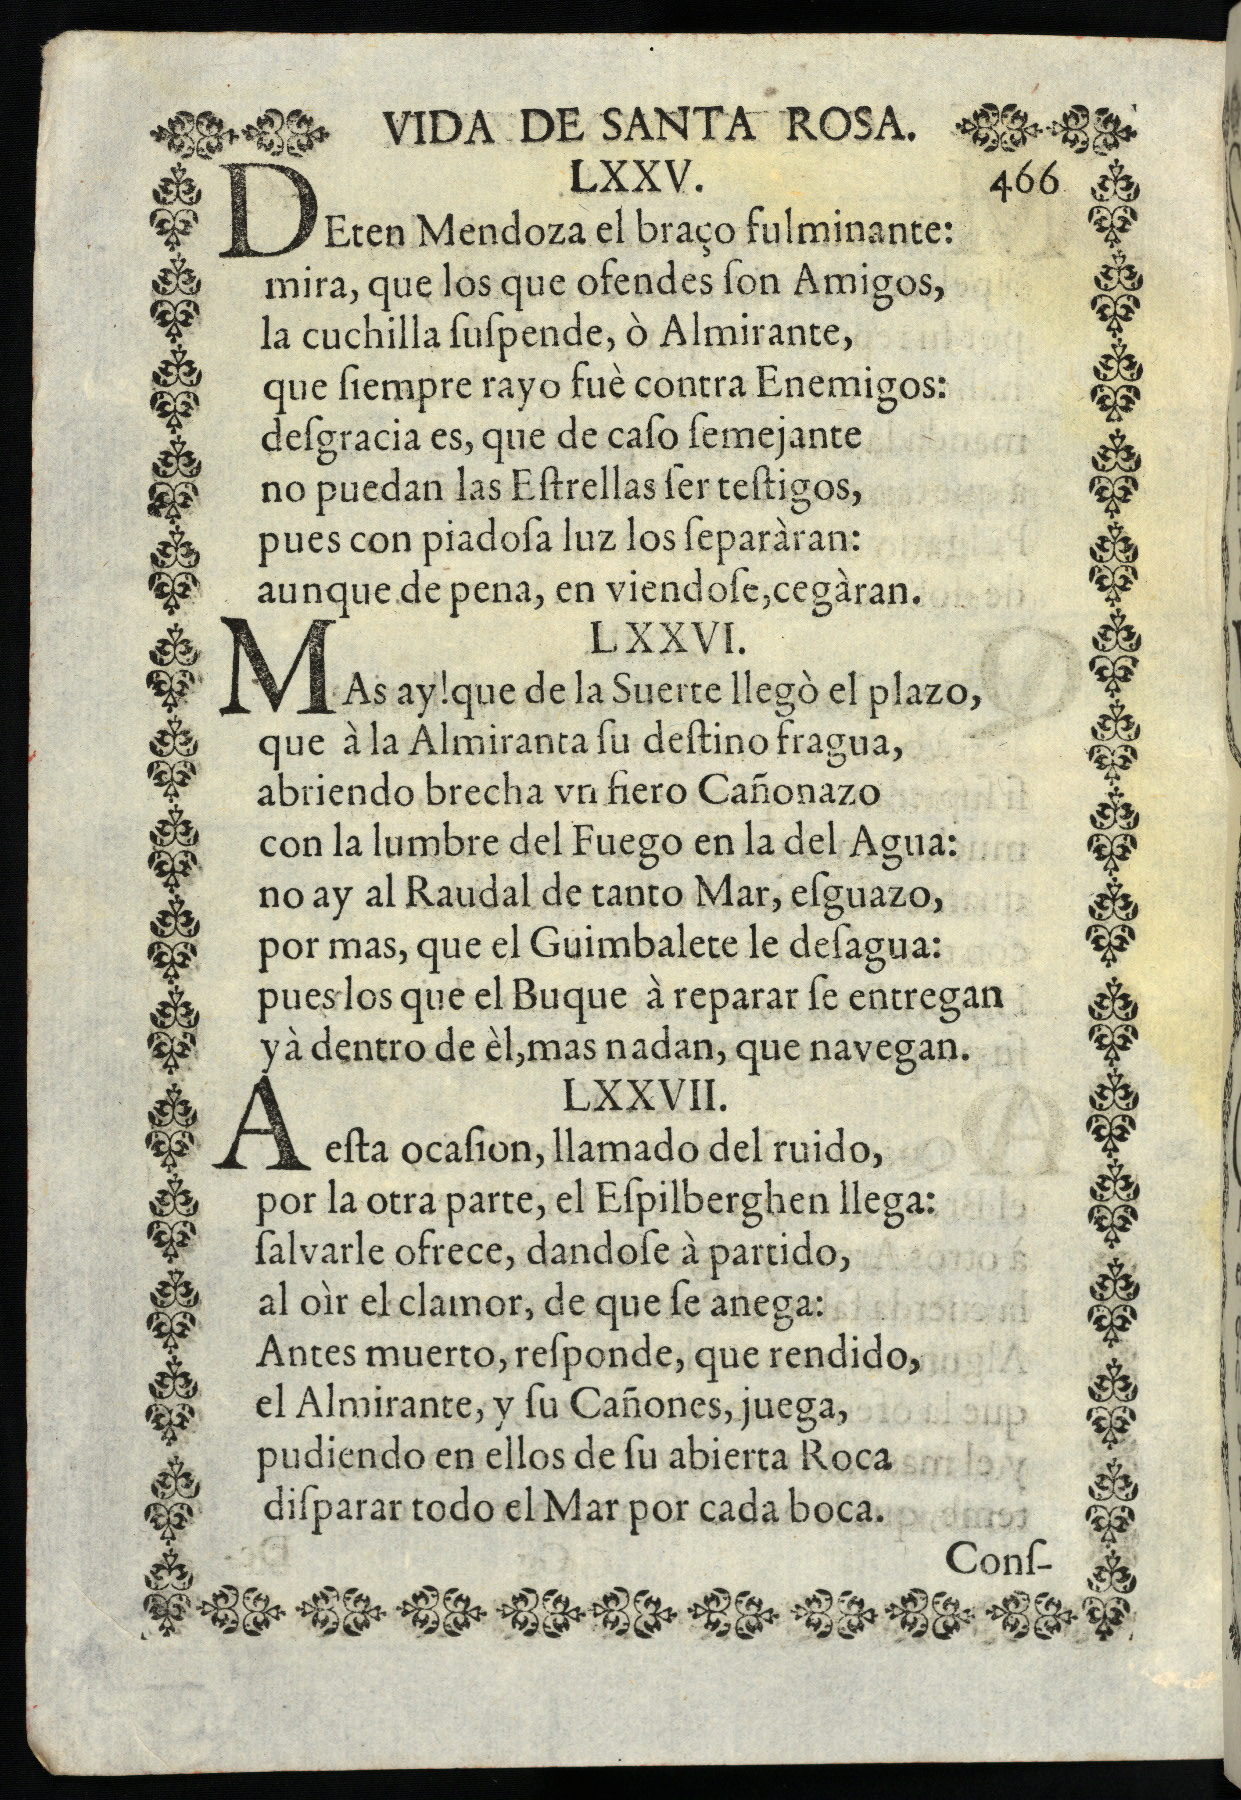 VIDA DE SANTA ROSA.
LXXV. 466
DEten Mendoza el braço fulminante:
mira, que los que ofendes ſon Amigos,
la cuchilla ſuſpende, ò Almirante,
que ſiempre rayo fuè contra Enemigos:
deſgracia es, que de caſo ſemejante
no puedan las Eſtrellas ſer teſtigos,
pues con piadoſa luz los ſeparàran:
aunque de pena, en viendoſe,cegàran.
LXXVI.
MAs ay!que de la Suerte llegò el plazo,
que à la Almiranta ſu deſtino fragua,
abriendo brecha vn fiero Cañonazo
con la lumbre del Fuego en la del Agua:
no ay al Raudal de tanto Mar, eſguazo,
por mas, que el Guimbalete le deſagua:
pues los que el Buque à reparar ſe entregan
yà dentro de èl,mas nadan, que navegan.
LXXVII.
A eſta ocaſion, llamado del ruido,
por la otra parte, el Eſpilberghen llega:
ſalvarle ofrece, dandoſe à partido,
al oìr el clamor, de que ſe anega:
Antes muerto, reſponde, que rendido,
el Almirante, y ſu Cañones, juega,
pudiendo en ellos de ſu abierta Roca
diſparar todo el Mar por cada boca.
Conſ-